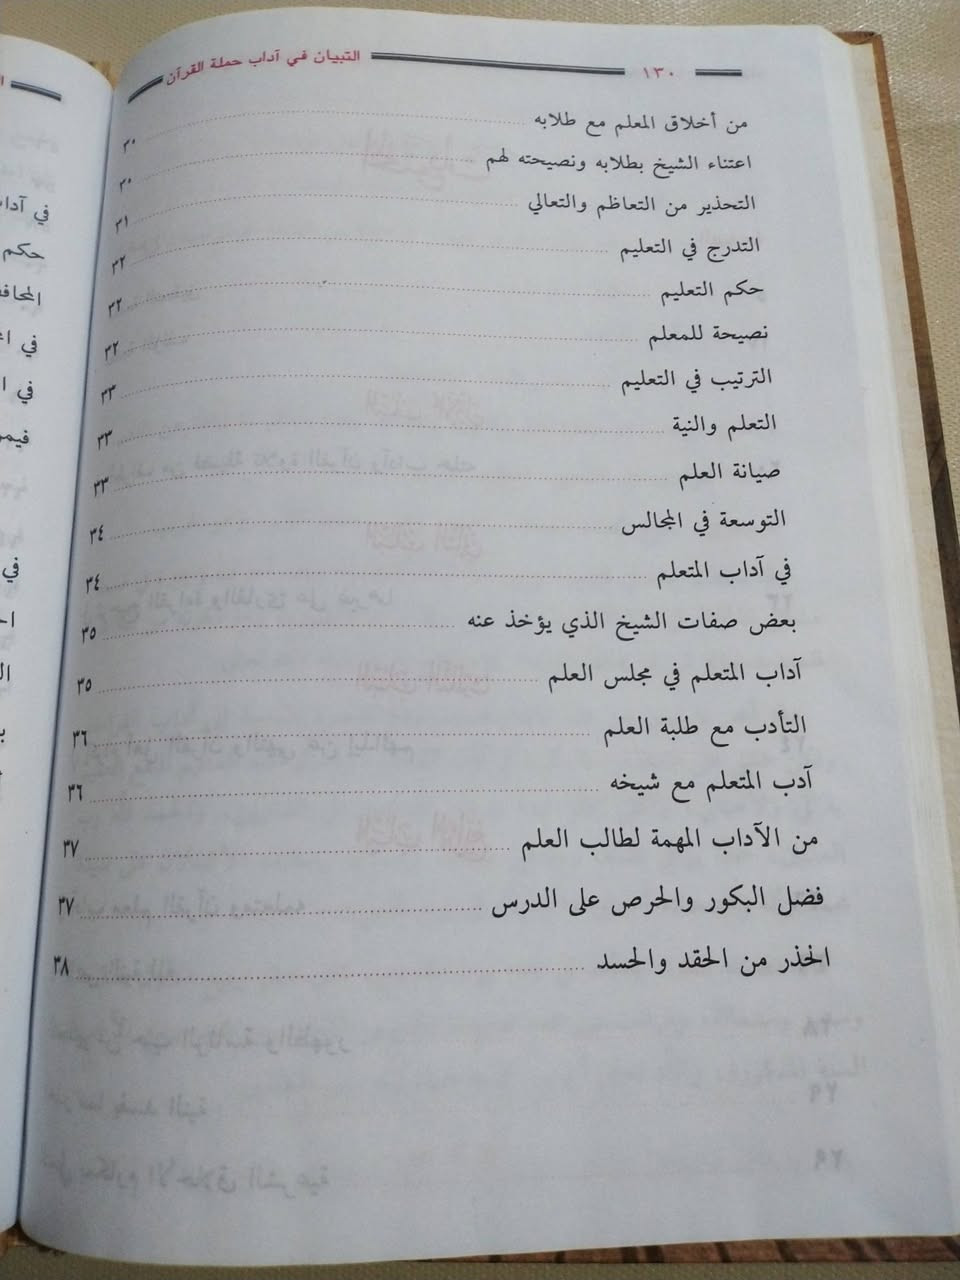 ١٣٠ التبيان في آداب حملة القرآن
من أخلاق المعلم مع طلابه ٣٠
اعتناء الشيخ بطلابه ونصيحته لهم ٣٠
التحذير من التعاظم والتعالي ٣١
التدرج في التعليم ٣٢
حكم التعليم ٣٢
نصيحة للمعلم ٣٢
الترتيب في التعليم ٣٣
التعلم والنية ٣٣
صيانة العلم ٣٣
التوسعة في المجالس ٣٤
في آداب المتعلم ٣٤
بعض صفات الشيخ الذي يؤخذ عنه ٣٥
آداب المتعلم في مجلس العلم ٣٥
التأدب مع طلبة العلم ٣٦
آدب المتعلم مع شيخه ٣٦
من الآداب المهمة لطالب العلم ٣٧
فضل البكور والحرص على الدرس ٣٧
الحذر من الحقد والحسد ٣٨